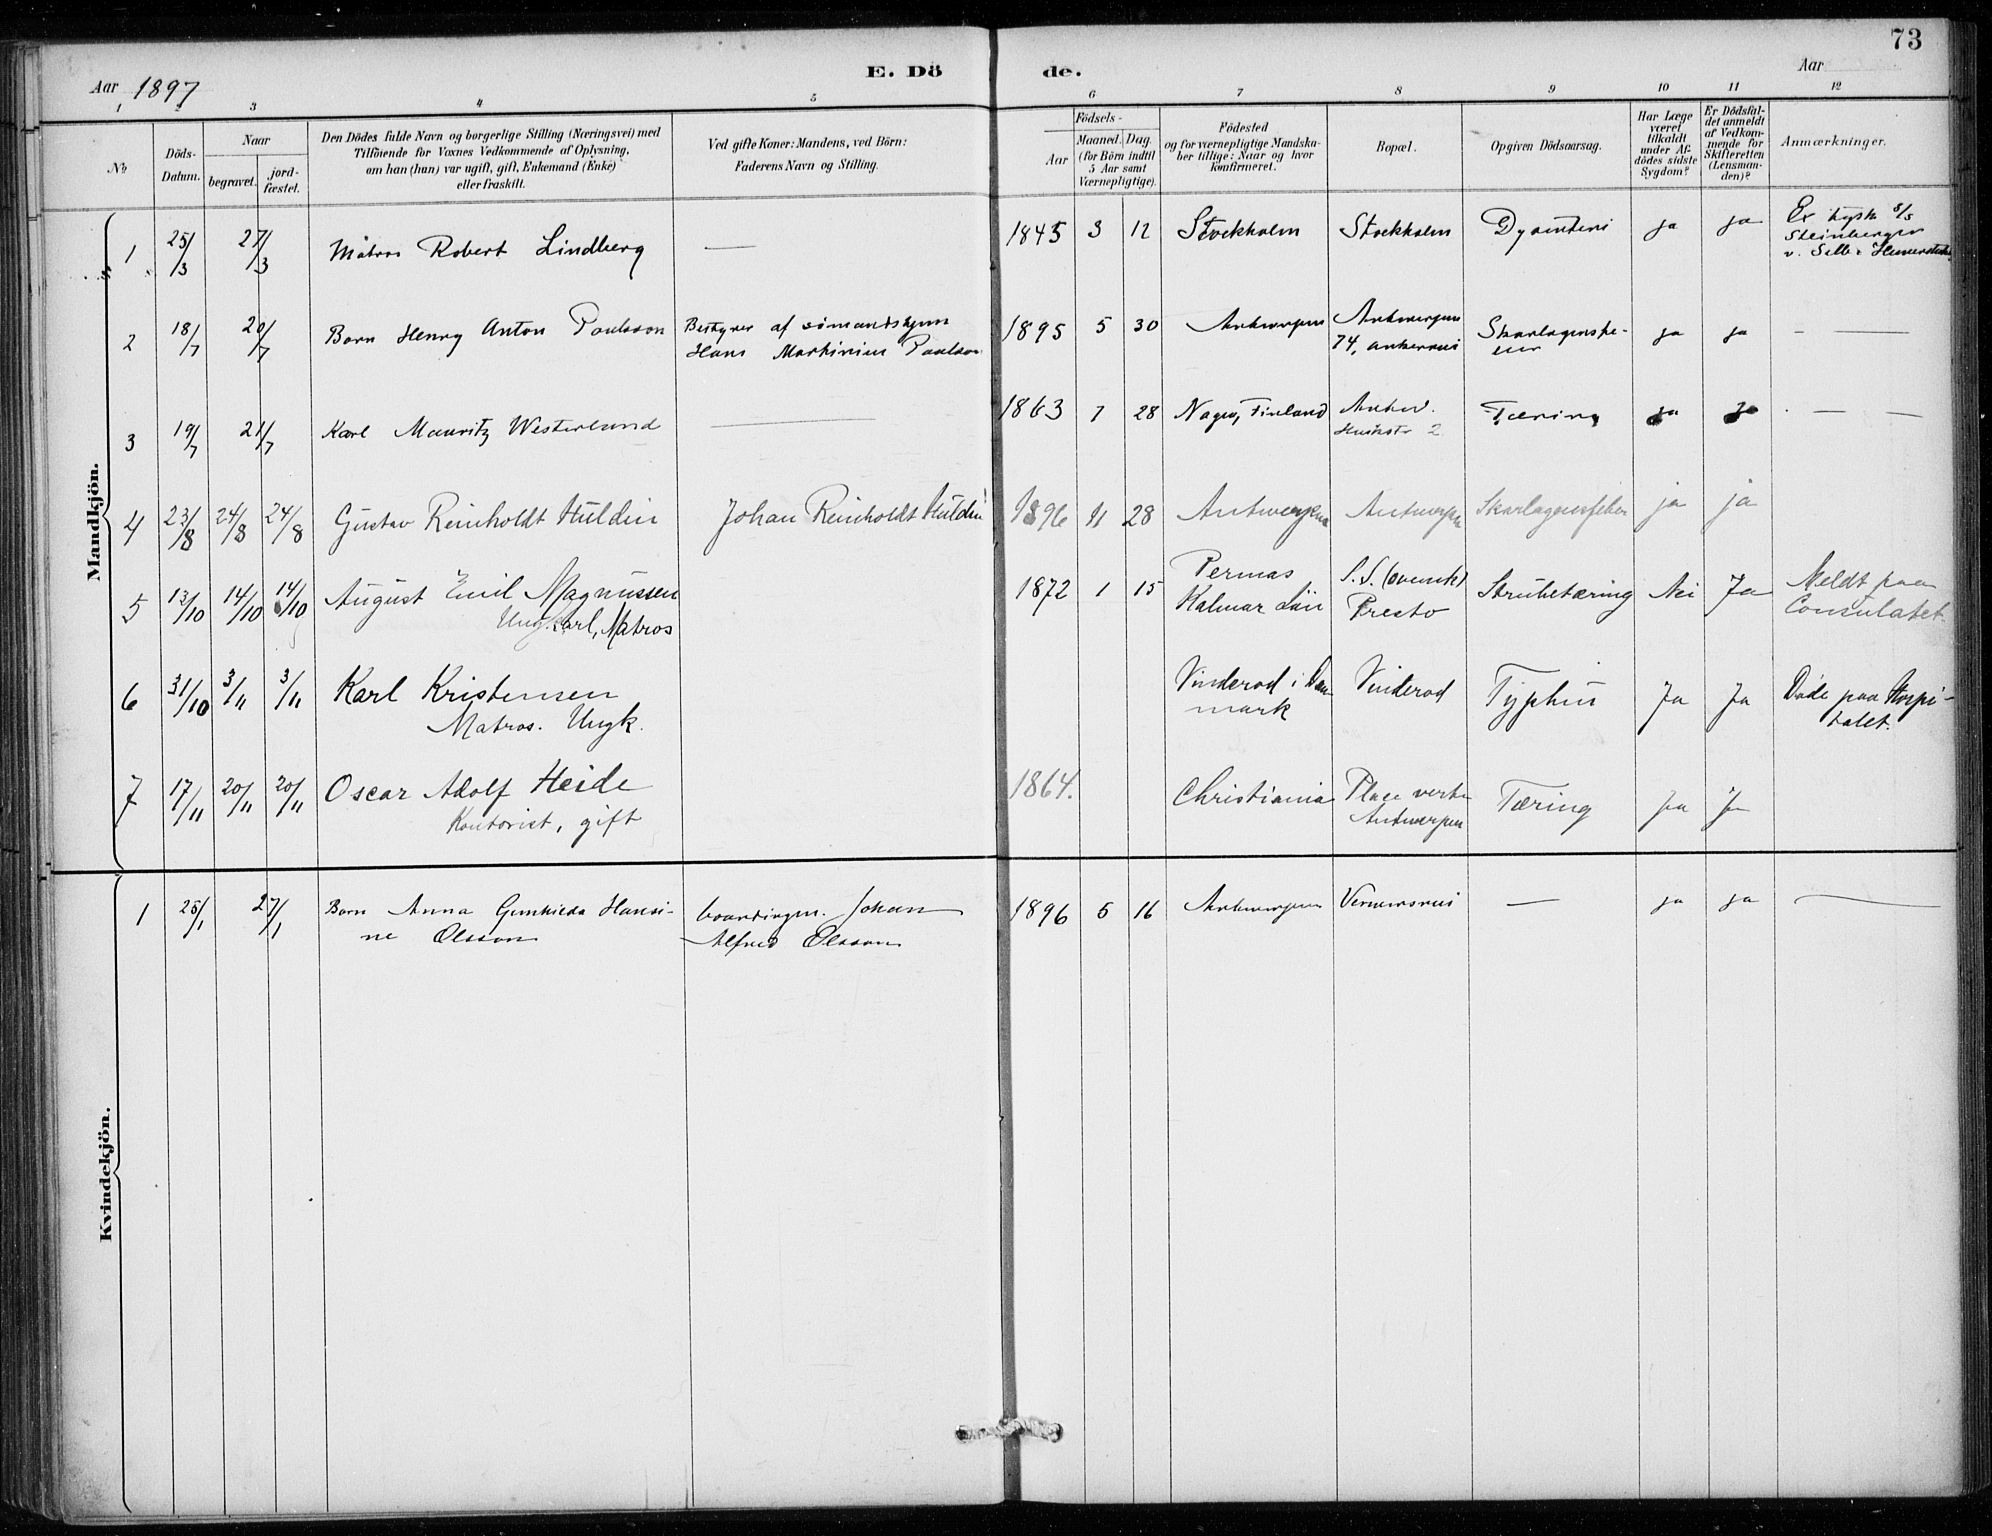 73
Aar 1897
E. Dö de.
Aar
1 2 3 4 5 6 7 8 9 10 11 12
No
Döds-Datum.
Naar
begravet.
jord-fæstet.
Den Dödes fulde Navn og borgerlige Stilling (Næringsvei) med
Tilföiende for Voxnes Vedkommende af Oplysning,
om han (hun) var ugift, gift, Enkemand (Enke)
eller fraskilt.
Ved gifte Koner: Mandens, ved Börn:
Faderens Navn og Stilling.
Födsels-
Aar
Maaned. Dag.
(for Börn indtil
5 Aar samt
Værnepligtige).
Födested
og for værnepligtige Mandska-
ber tillige: Naar og hvor
konfirmeret.
Bopæl.
Opgiven Dödsaarsag.
Har Læge
været
tilkaldt
under Af-
dödes sidste
Sygdom?
Er Dödsfal-
det anmeldt
af Vedkom-
mende for
Skifteretten
(Lensman-
den)?
Anmærkninger.
Mandkjön.
1 25/3 27/3 Matros Robert Lindberg — 1845 3 12 Stockholm Stockholm Dysenteri ja ja Ex tysk s/s
Steinberger
2 18/7 20/7 Barn Henry Anton Paulsson Bestyrer af sömandshjem
Hans Markinius Paulson 1895 5 30 Antwerpen Antwerpen
74, ankerrui Skarlagensfe-
ber ja ja — —
3 19/7 21/7 Karl Mauritz Westerlund — 1863 7 28 Nagu, Finland Antw.
2 Tæring ja ja — —
4 23/8 24/8 24/8 Gustav Reinholdt Huldin Johan Reinholdt Huldin 1896 11 28 Antwerpen Antwerpen Skarlagensfeber ja ja
5 13/10 14/10 14/10 August Emil Magnussen
Ungkarl, Matros 1872 1 15 Permas
Kalmar Län S.S. (svensk)
Presto Strubetæring Nei Ja Meldt paa
Consulatet.
6 31/10 3/11 3/11 Karl Kristensen
Matros. Ungk. Vinderod i Dan-
mark Vinderod Typhus Ja Ja Döde paa Hospi-
talet.
7 17/11 20/11 20/11 Oscar Adolf Heide
Kontorist, gift 1864. Christiania Place verte
Antwerpen Tæring Ja Ja
Kvindekjön.
1 25/1 27/1 Barn Anna Gunhilda Hansi-
ne Olsson boardingm. Johan
Alfred Olsson 1896 5 16 Antwerpen Verversrui — ja ja —